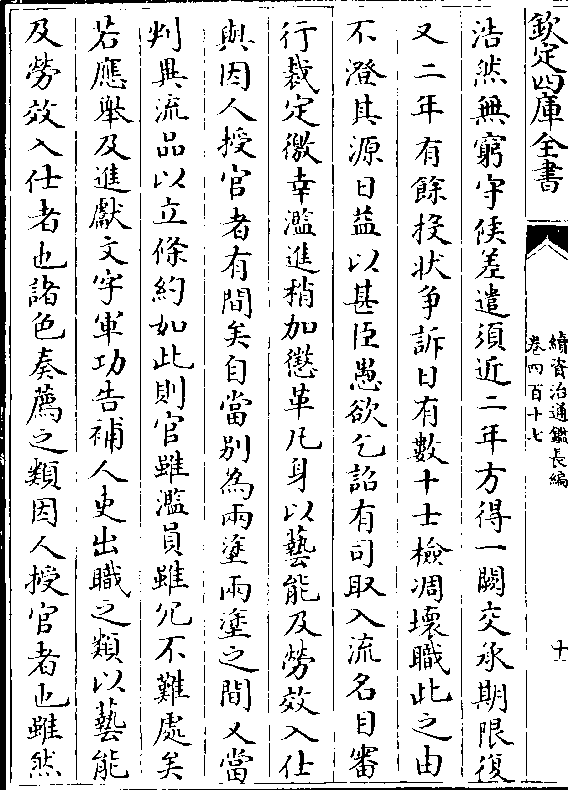 欽定四庫全書
續資治通鑑長編
卷四百十七
十一
浩然無窮守候差遣須近二年方得一闕交承期限復
又二年有餘投狀争訴日有數十士檢凋壞職此之由
不澄其源日益以甚臣愚欲乞詔有司取入流名目審
行裁定徼幸濫進稍加懲革凡身以藝能及勞效入仕
與因人授官者有間矣自當别為兩塗兩塗之間又當
判異流品以立條約如此則官雖濫員雖冗不難處矣
若應舉及進獻文字軍功告補人吏出職之類以藝能
及勞效入仕者也諸色奏薦之類因人授官者也雖然